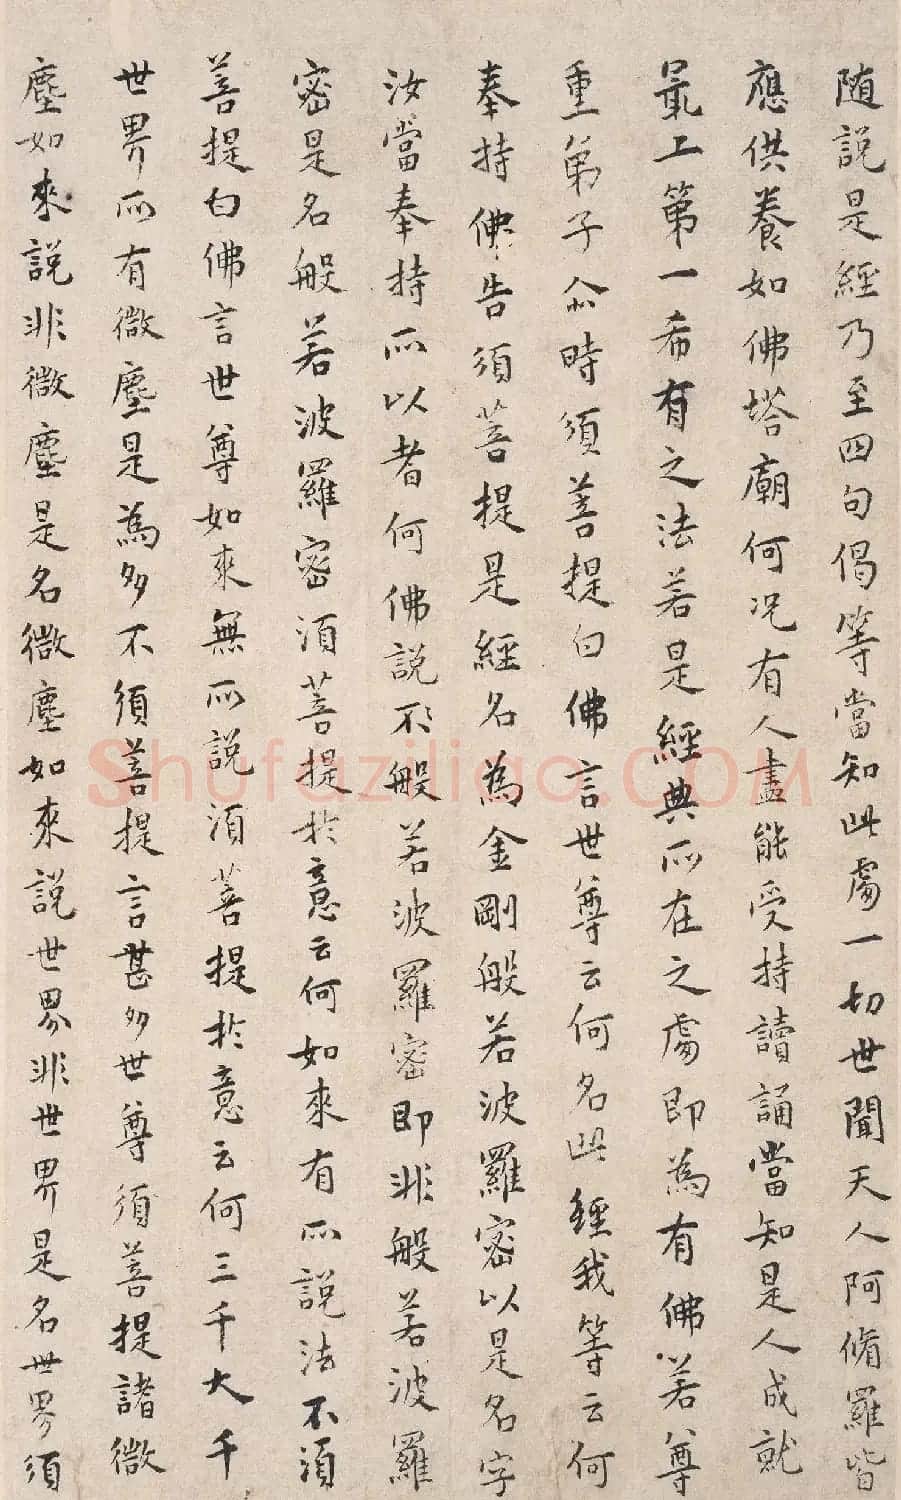 随説是經乃至四句偈等當知此處一切世間天人阿脩羅皆
應供養如佛塔廟何况有人盡能受持讀誦當知是人成就
最上第一希有之法若是經典所在之處即為有佛若尊
重弟子尒時須菩提白佛言世尊云何名此經我等云何
奉持佛告須菩提是經名為金剛般若波羅密以是名字
汝當奉持所以者何佛説般若波羅密即非般若波羅
密是名般若波羅密須菩提於意云何如來有所説法不須
菩提白佛言世尊如來無所説須菩提於意云何三千大千
世界所有微塵是為多不須菩提言甚多世尊須菩提諸微
塵如來説非微塵是名微塵如來説世界非世界是名世界須
Shufaziliao.COM